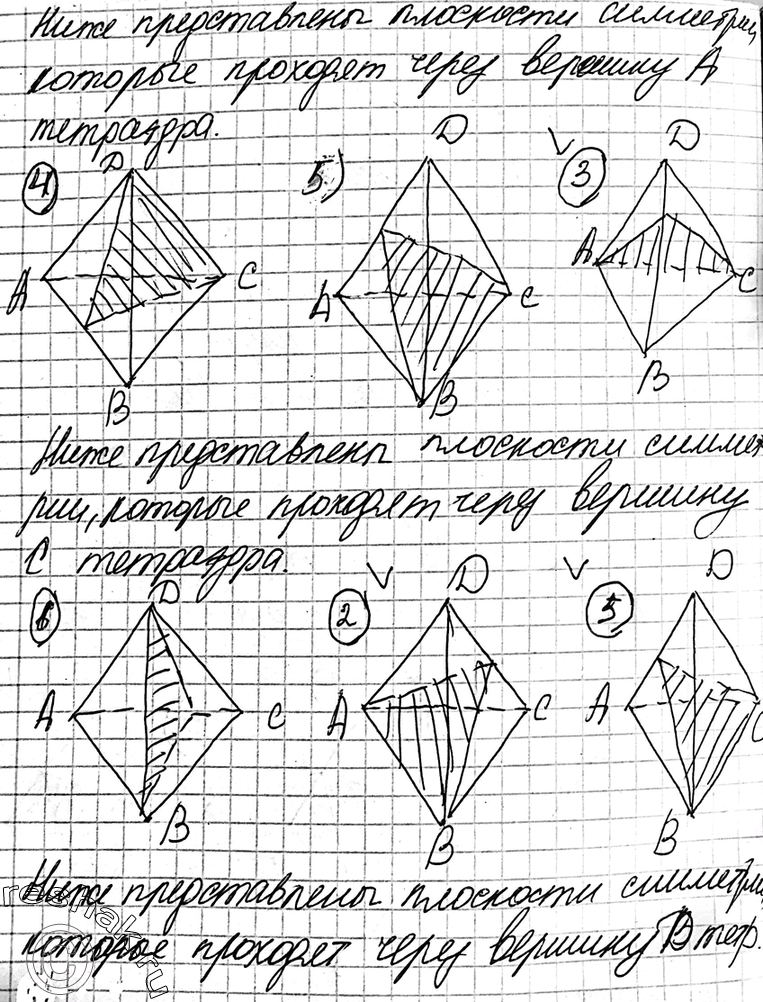 Ниже представлены плоскости симметрии,
которые проходят через вершину А
тетраэдра.
4 D A C B
5) D A C B
V 3 D A C B
Ниже представлены плоскости симмет-
рии, которые проходят через вершину
С тетраэдра.
1 D A C B
2 V D A C B
V 5 D A C B
Ниже представлены плоскости симметрии,
которые проходят через вершину В тетр.
reshak.ru